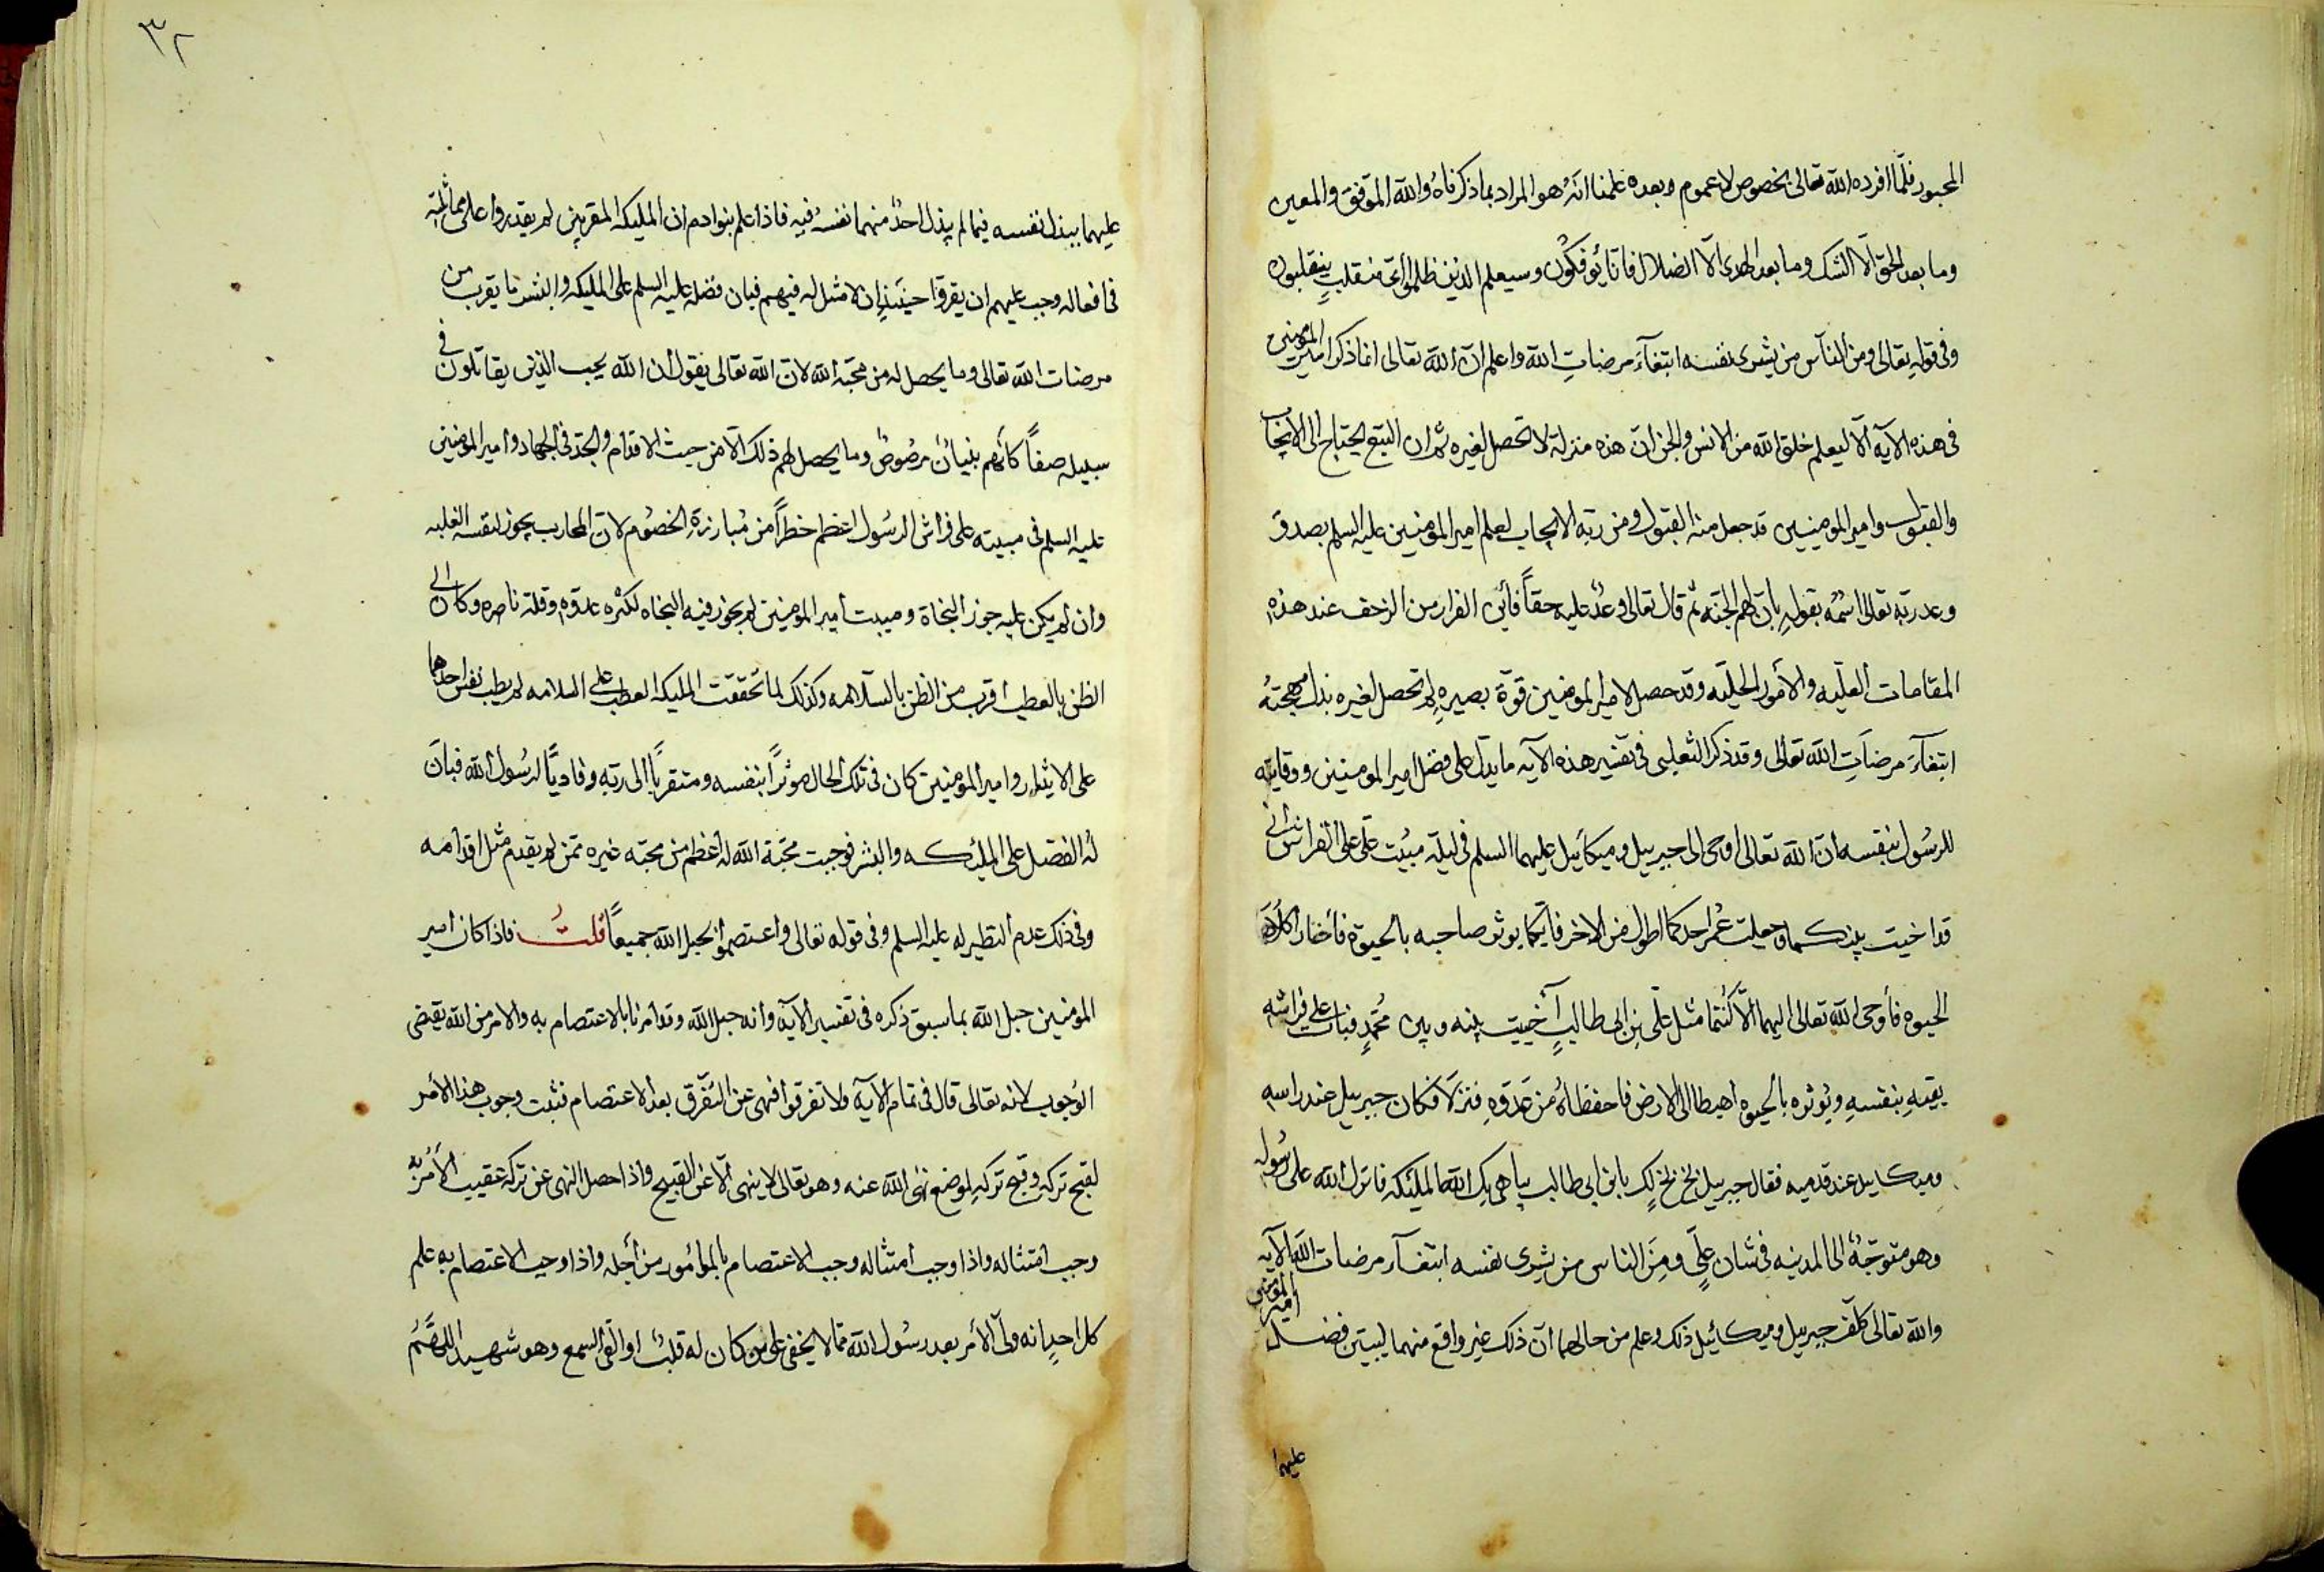 المحبور فلمّا افرده الله تعالى بخصوص لا عموم وبعده علمنا انّه هو المراد بما ذكرناه والله الموفق والمعين
وما بعد الحق الّا الشك وما بعد الهدى الّا الضلال فانّا تؤفكون وسيعلم الذين ظلموا اىّ منقلبٍ ينقلبون
وفى قوله تعالى ومن الناس من يشرى نفسه ابتغآء مرضات الله واعلم انّ الله تعالى انما ذكر امير المؤمنين
فى هذه الآيه الّا ليعلم خلق الله من الانس والجن انّ هذه منزلة لا تحصل لغيره ثم ان البيع يحتاج الى الايجاب
والقبول وامير المومنيين قد جعل منه القبول ومن ربّه الايجاب لعلم امير المؤمنيين عليه السلم بصدق
وعد ربّه تعالى اسمه بقوله بانّ لهم الجنّه ثم قال تعالى وعدًا عليه حقاً فأين الفرار من الزحف عند هذه
المقامات العليّه والأمور الجليّه وقد حصل لامير المومنين قوّة بصيرهٍ لم تحصل لغيره بذل مهجته
ابتغآء مرضاتِ الله تعالى وقد ذكر الثعلبى فى تفسير هذه الآيه ما يدلّ على فضل امير المومنين ووقايته
للرسُول بنفسه انّ الله تعالى اوحى الى جبرييل وميكآئيل عليهما السلم فى ليلة مبيُت علىّ على الفراش انى
قد اخيت بينكما وجعلت عُمر احدكما اطول من الاخر فايّكما يوثر صاحبه بالحيوة فأختار كلاهما
الحيوه فأوحى الله تعالى اليهما الّا كُنتما مثل علىّ بن ابى طالبٍ آخيت بينه وبين مُحمّدٍ فبات على فراشه
يقيهِ بنفسهِ ويُوثره بالحيوه اهبطا الى الارض فاحفظاه من عدوّهِ فنزلا فكان جبرييل عند راسه
وميكاييل عند قدميه فقال جبرييل بخ بخ لك يابن ابى طالب يباهى بك الله الملئكه فانزل الله على رسُوله
وهو متوجّهٌ الى المدينه فى شان علىٍّ ومِنَ الناس من يشرى نفسه ابتغآء مرضات الله الآيه
والله تعالى كلّف جبرييل وميكائيل ذلك وعلم من حالهما انّ ذلك غير واقع منهما ليبيّن فضل امير المومنين
عليهما
٣٢
عليهما ببذل نفسه فيما لم يبذل احدٌ منهما نفسهُ فيه فاذا علم بنوادم ان المليكه المقربين لم يقدروا على مماثلته
فى افعاله وجب عليهم ان يقرّوا حينَئذٍ ان لا مثل له فيهم فبان فضله عليه السلم على المليكه والبشر ما يقرب من
مرضات الله تعالى وما يحصل له من محبّه الله لانّ الله تعالى يقول ان الله يحب الذين يقاتلون فى
سبيله صفاً كأنهم بنيانٌ مرصُوصٌ وما يحصل لهم ذلك الّا من حيث الاقدام والجدّ فى الجهاد وامير المومنين
عليه السلم فى مبيته على فراش الرسُول اعظم خطراً من مُبارزةِ الخصُوم لانّ المحارب يجوز لنفسه الغلبه
وان لم يكن غلبه جوز النجاة ومبيت امير المومنين لم يجوز فيه النجاه لكثره عدوّه وقلة ناصره وكان الى
الظن بالعطب اقرب من الظن بالسلامه وكذلك لما تحققت المليكه العطب على السلامه لم يطب نفس احدهما
على الايثار وامير المومنين كان فى تلك الحال موثراً بنفسه ومتقرباً الى ربّه وفادياً لرسُول الله فبانَ
لهُ الفضل على المليئكه والبشر فوجبت محبّة الله له اعظم من محبّه غيره ممّن لم يقدم مثل اقدامه
وفى ذلك عدم النظير له عليه السلم وفى قوله تعالى واعتصموا بحبل الله جميعاً قلتُ فاذا كان امير
المومنيين حبل الله بما سبق ذكره فى تفسير الآيه وانه حبل الله وقد امرنا بالاعتصام به والامر من الله يقتضى
الوُجوب لانه تعالى قال فى تمام الآيه ولا تفرقوا فنهى عن التفرّق بعد الاعتصام فثبت وجوب هذا الأمر
لقبح تركه وقبح تركهِ لموضع نهى الله عنه وهو تعالى لا ينهى الّا عن القبيح واذا حصل النهى عن تركه عقيب الأمر به
وجب امتثاله واذا وجب امتثاله وجب الاعتصام بالمأمور من أجله واذا وجب الاعتصام به علم
كل احدٍ انه ولىّ الأمر بعد رسُول الله ممّا لا يخفى على من كان له قلبٌ او القى السمع وهو شهيد اللهّمَُ